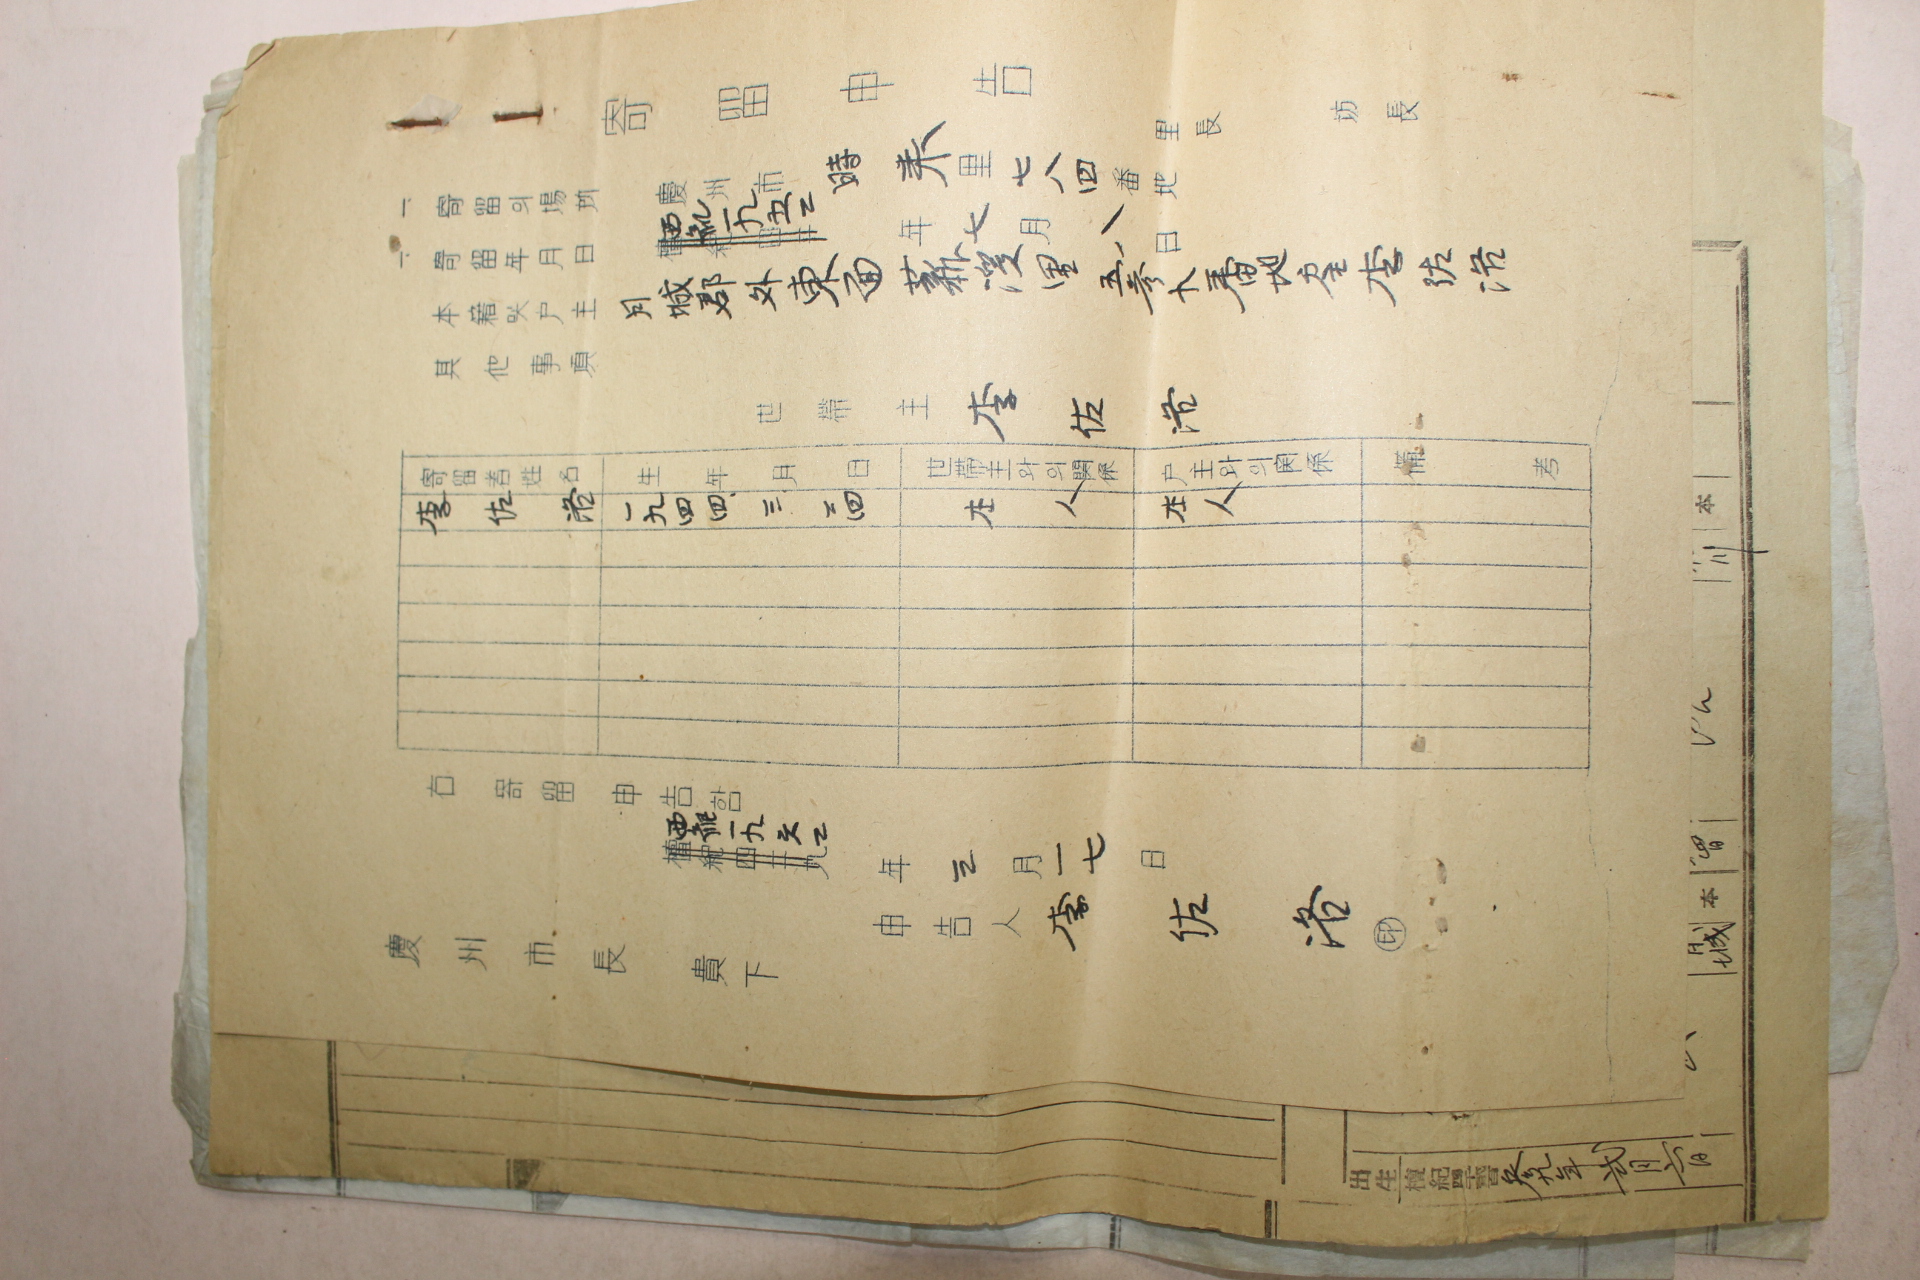 寄留申告
里長 坊長
一、寄留의場所 慶州市 時来里七八四番地
一、寄留年月日 檀紀四二 西紀一九五二年七月八日
本籍及戸主 月城郡外東面薪渓里五参九番地 李佐洛
其他事項
世帯主 李佐洛
寄留者姓名 生年月日 世帯主와의関係 戸主와의関係 備考
李佐洛 一九四四、三、二四 本人 本人
右寄留申告함
檀紀四二九 西紀一九六二年三月一七日
申告人 李佐洛 印
慶州市長 貴下
出生 檀紀四千貳百参九年弐月六日
本
城
本